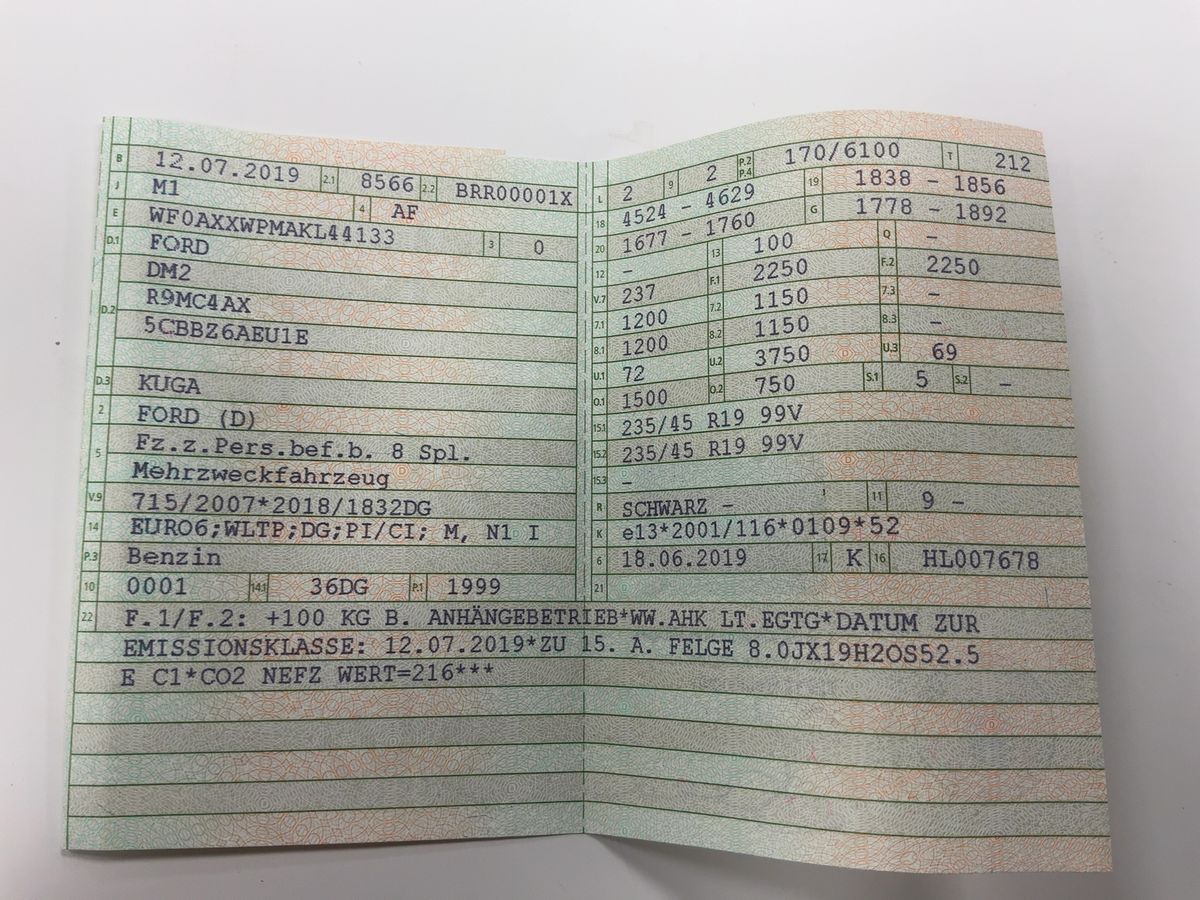 B 12.07.2019 2.1 8566 2.2 BRR00001X
J M1 4 AF
E WF0AXXWPMAKL44133 3 0
D.1 FORD
D.2 DM2
R9MC4AX
5CBBZ6AEU1E
D.3 KUGA
2 FORD (D)
5 Fz.z.Pers.bef.b. 8 Spl.
Mehrzweckfahrzeug
V.9 715/2007*2018/1832DG
14 EURO6;WLTP;DG;PI/CI; M, N1 I
P.3 Benzin
10 0001 14.1 36DG P.1 1999
L 2 9 2 P.2 P.4 170/6100 T 212
18 4524 - 4629 19 1838 - 1856
20 1677 - 1760 G 1778 - 1892
12 - 13 100 Q -
V.7 237 F.1 2250 F.2 2250
7.1 1200 7.2 1150 7.3 -
8.1 1200 8.2 1150 8.3 -
U.1 72 U.2 3750 U.3 69
O.1 1500 O.2 750 S.1 5 S.2 -
15.1 235/45 R19 99V
15.2 235/45 R19 99V
15.3 -
R SCHWARZ - 11 9 -
K e13*2001/116*0109*52
6 18.06.2019 17 K 16 HL007678
21
22 F.1/F.2: +100 KG B. ANHÄNGEBETRIEB*WW.AHK LT.EGTG*DATUM ZUR
EMISSIONSKLASSE: 12.07.2019*ZU 15. A. FELGE 8.0JX19H2OS52.5
E C1*CO2 NEFZ WERT=216***